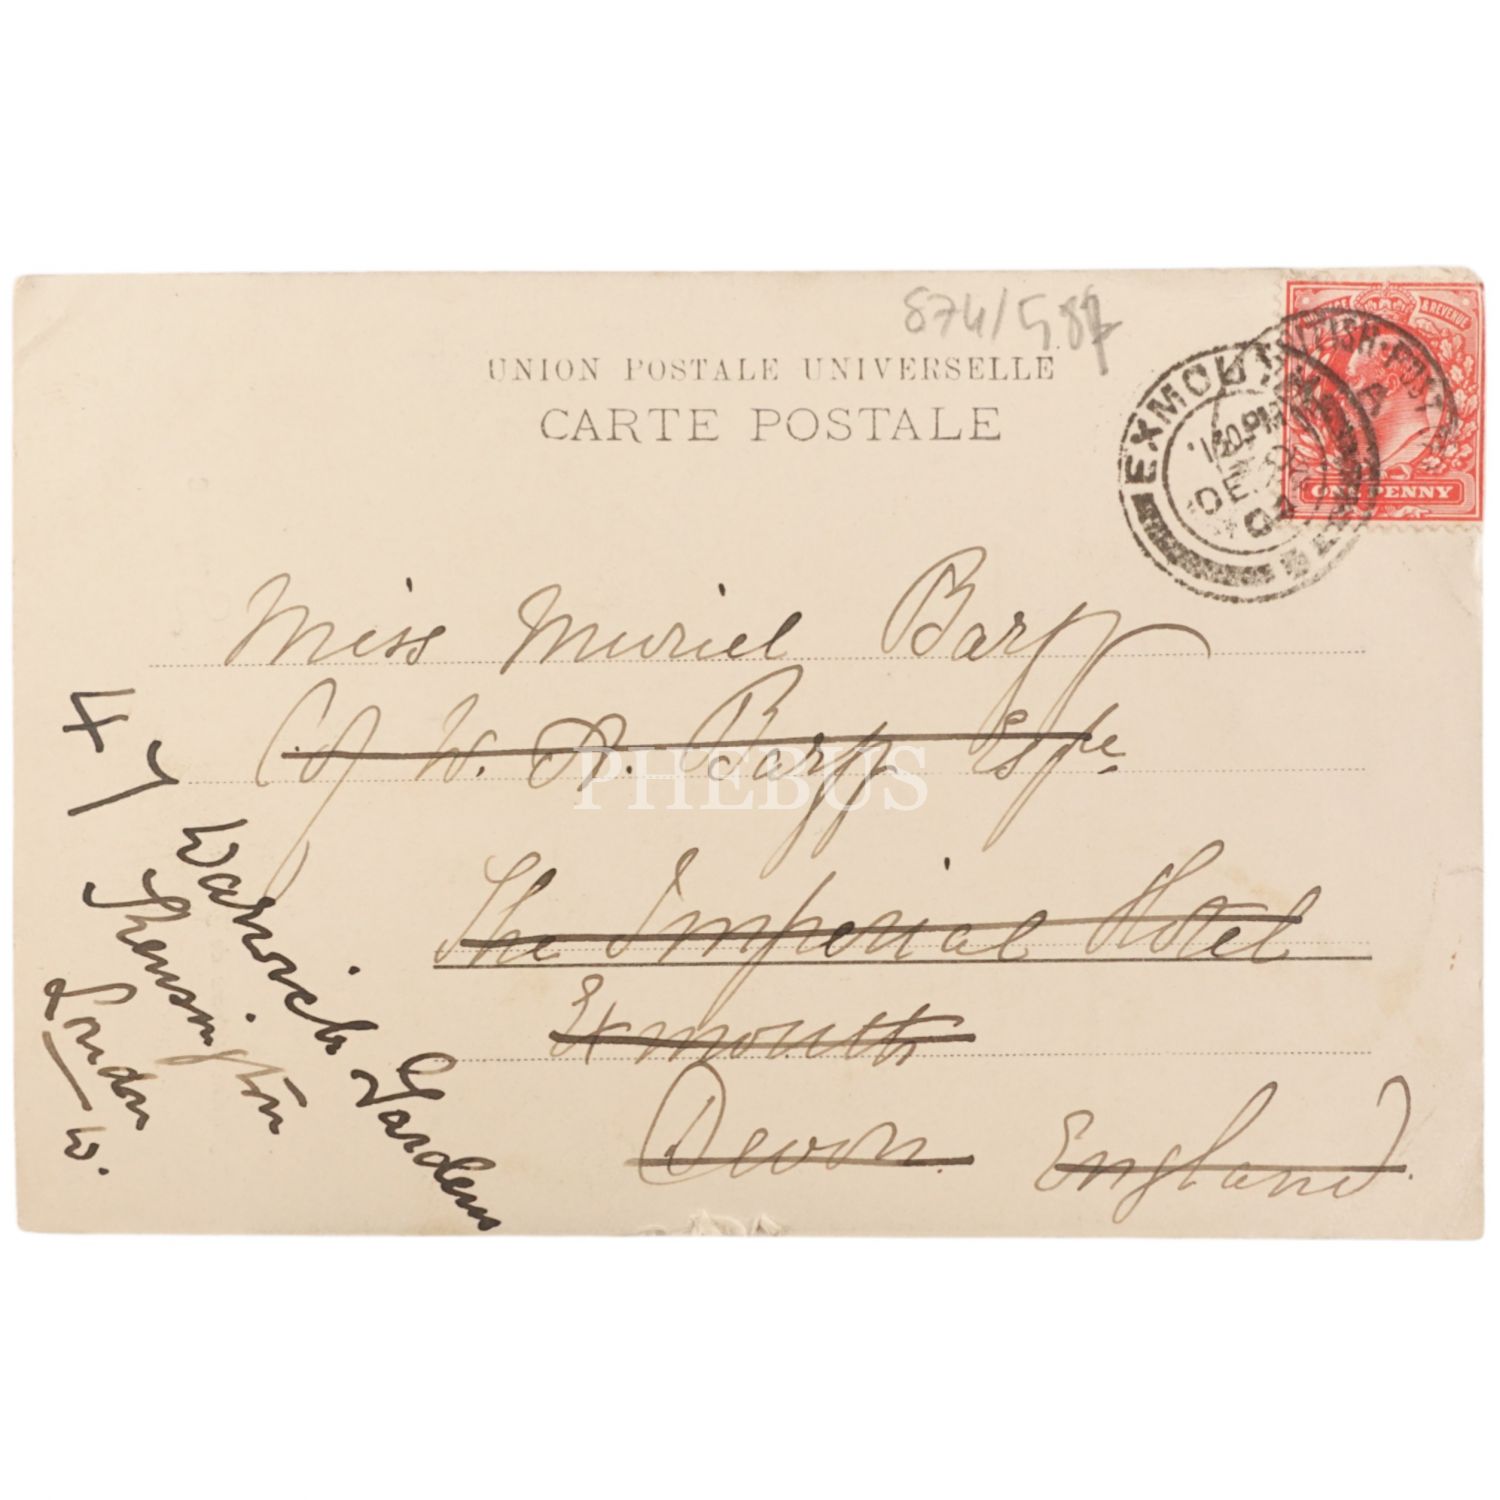 874/587
UNION POSTALE UNIVERSELLE
CARTE POSTALE
& REVENUE
ONE PENNY
BRITISH·POST
A
EXMOUTH
1 30 PM
DE
04
Miss Muriel Barff
C/o W. A. Barff Esqre
PHEBUS
The Imperial Hotel
Exmouth
Devon. England.
47 Warwick Gardens
Kensington
London
W.